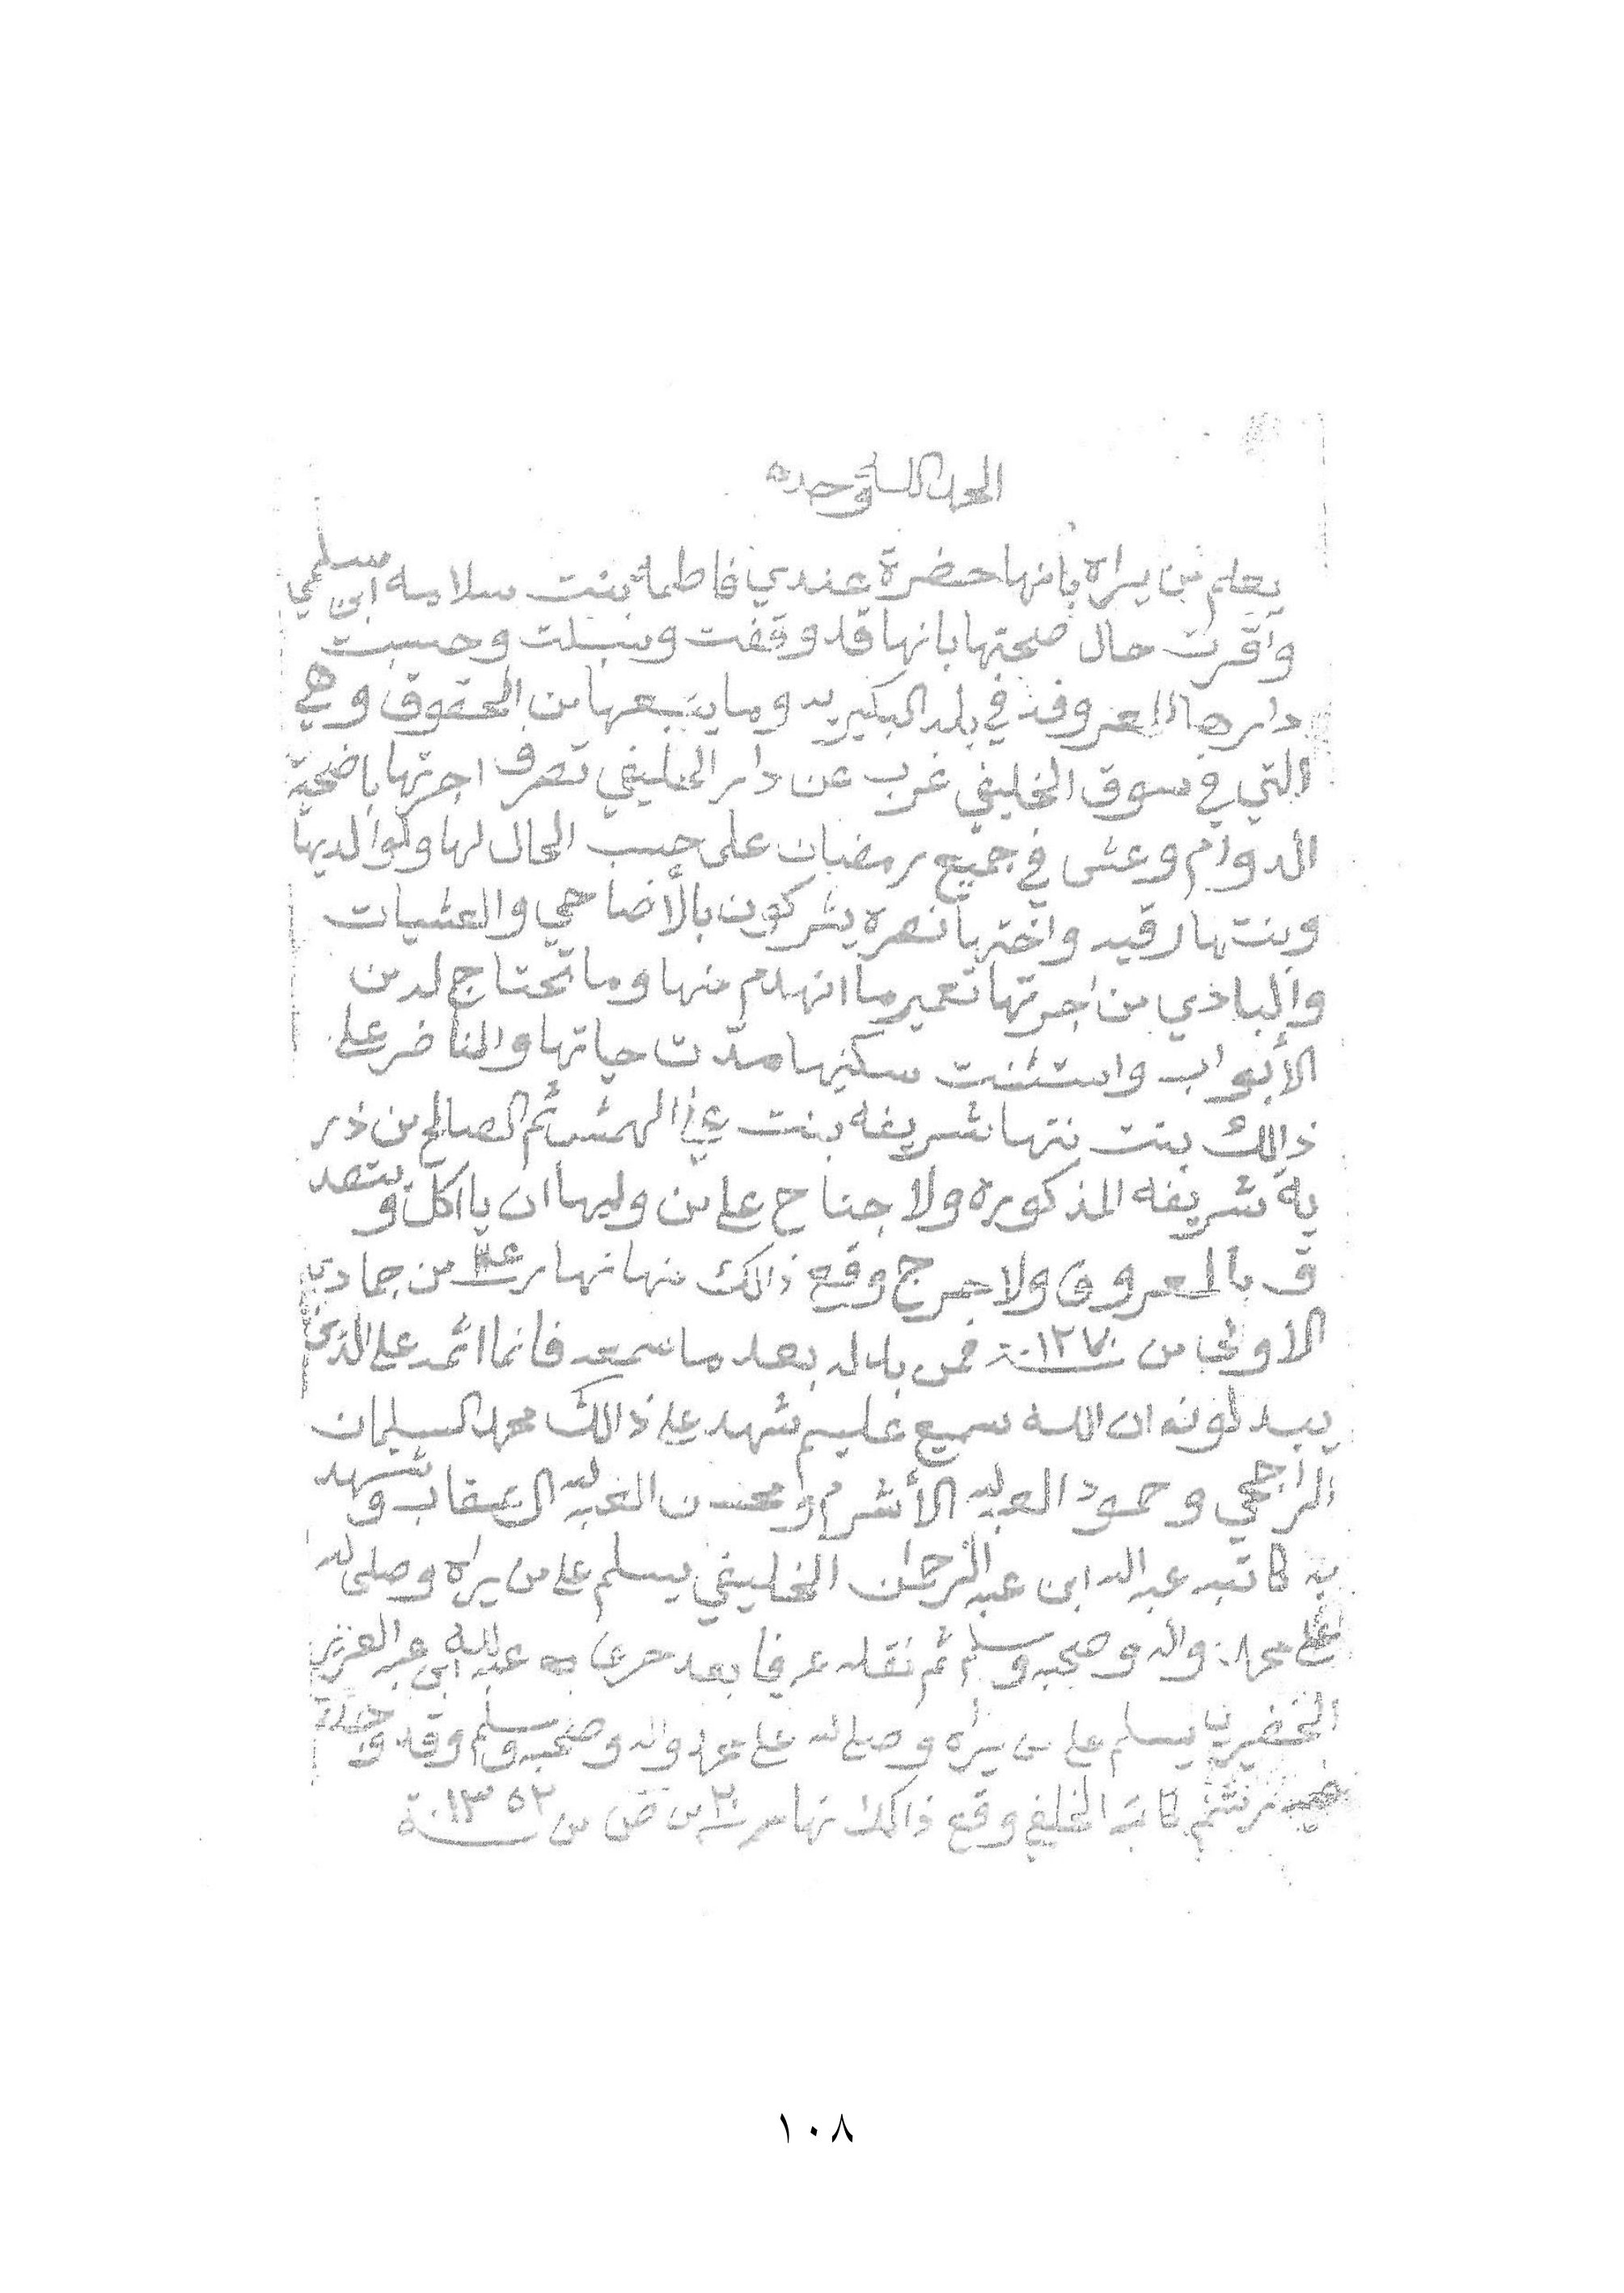 الحمد لله وحده
يعلم من يراه بانها حضرة عندي فاطمة بنت سلامه ابن سلمي
واقرت حال صحتها بانها قد وقفت وسبلت وحبست
دارها المعروفه في بلد البكيريه وما يتبعها من الحقوق وهي
التي في سوق الخليفي غرب عن دار الخليفي تصرف اجرتها باضحية
الدوام وعشى في جميع رمضان على حسب الحال لها ولوالديها
وبنتها رقيه واختها نصره يشركون بالأضاحي والعشيات
والباذي من اجرتها تعمير ما انهدم منها وما تحتاج له من
الأبواب واستثنت سكنها مدت حياتها والناضر على
ذالك بنت بنتها شريفه بنت علي الهمش ثم الصالح من ذر
ية شريفه المذكوره ولا جناح على من وليها ان ياكل ويتصد
ق بالمعروف ولا حرج وقع ذالك منها نهار من جمادى
الاولى من ١٢٧٠ سنة فمن بدله بعد ما سمعه فانما اثمه على الذي
يبدلونه ان الله سميع عليم شهد على ذالك محمد السليمان
الراجحي وحمود العبدالله الأشرم ومحسن العبدالله ال عقاب وشهد
به كاتبه عبدالله ابن عبدالرحمن الخليفي يسلم على من يراه وصلى الله
على محمد واله وصحبه وسلم ثم نقله حرفا بعد حرف عبدالله ابن عبدالعزيز
الخضيري يسلم على من يراه وصلى الله على محمد واله وصحبه وسلم وقد وجدة
ختم كاتبه الخليفي وقع ذالك نهار ٢٠ من من ١٣٥٢ سنة
١٠٨